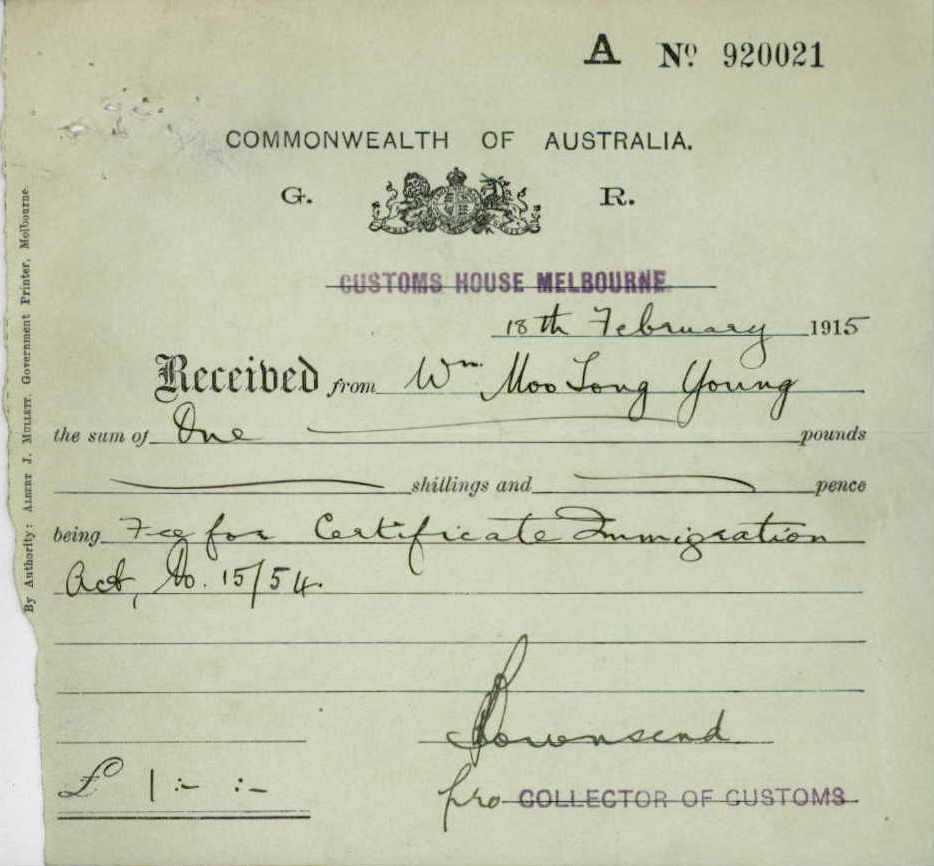 A Nº 920021
COMMONWEALTH OF AUSTRALIA.
G. R.
CUSTOMS HOUSE MELBOURNE
18th February 1915
Received from Wm. Moo Tong Young
the sum of One pounds
shillings and pence
being Fee for Certificate Immigration
Act, No. 15/54.
Townsend
£ 1 :- :-
pro COLLECTOR OF CUSTOMS
By Authority: ALBERT J. MULLETT, Government Printer, Melbourne.